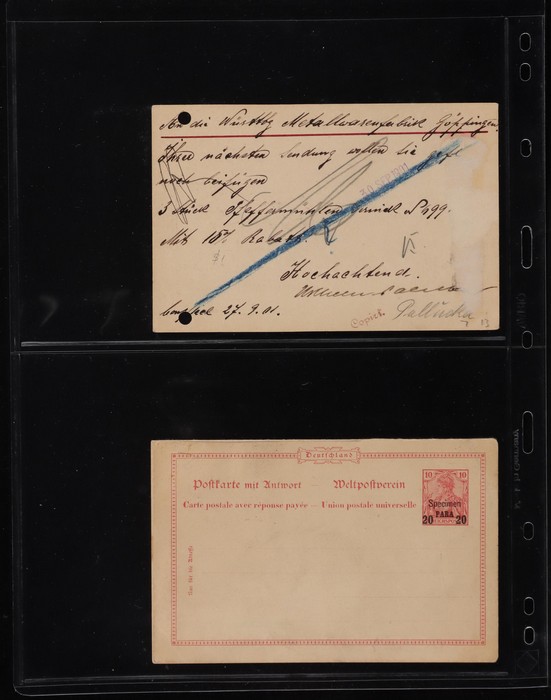 An die Württbg Metallwarenfabrik Göppingen.
Ihrer nächsten Sendung wollen Sie gefl
noch beifügen
3 Stück Pfeffermühlen vernick. N 199.
Mit 15% Rabatt.
Hochachtend.
27.9.01.
Copirt.
Deutschland
Postkarte mit Antwort — Weltpostverein
Carte postale avec réponse payée — Union postale universelle
Nur für die Adresse
10 10
Specimen
PARA
20 20